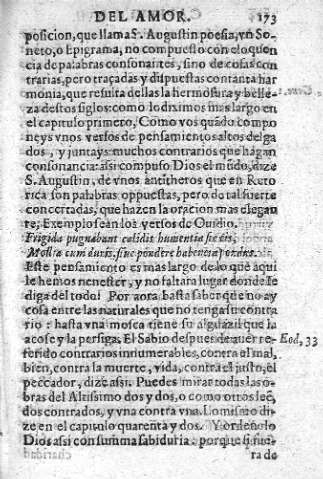 DEL AMOR. 173
posicion, que llama S. Augustin poesia, vn So-
neto, o Epigrama, no compuesto con eloquen
cia de palabras consonantes, sino de cosas con
trarias, pero traçadas y dispuestas con tanta har
monia, que resulta dellas la hermosura y belle-
za destos siglos: como lo diximos mas largo en
el capitulo primero. Como vos quãdo compo
neys vnos versos de pensamientos altos delga
dos, y juntays muchos contrarios que hagan
consonancia: assi compuso Dios el mũdo, dize
S. Augustin, de vnos antitheros que en Reto
rica son palabras oppuestas, pero de tal suerte
concertadas, que hazen la oracion mas elegan
te; Exemplo sean los versos de Ouidio.
Frigida pugnabant calidis humentia siccis,
Mollia cum duris, sine pondere habentia pondus.
Este pensamiento es mas largo de lo que aqui
le hemos menester, y no faltara lugar donde le
diga del todo. Por aora basta saber que no ay
cosa entre las naturales que no tenga su contra
rio: hasta vna mosca tiene su alguazil que la
acose y la persiga. El Sabio despues de auer re-
ferido contrarios innumerables, contra el mal,
bien, contra la muerte, vida, contra el justo, el
peccador, dize assi. Puedes mirar todas las o-
bras del Altissimo dos y dos, o como otros leẽ,
dos contra dos, y vna contra vna. Lo mismo di-
ze en el capitulo quarenta y dos. Y ordenolo
Dios assi con summa sabiduria: porque si fue-
ra de
Eccl. 33